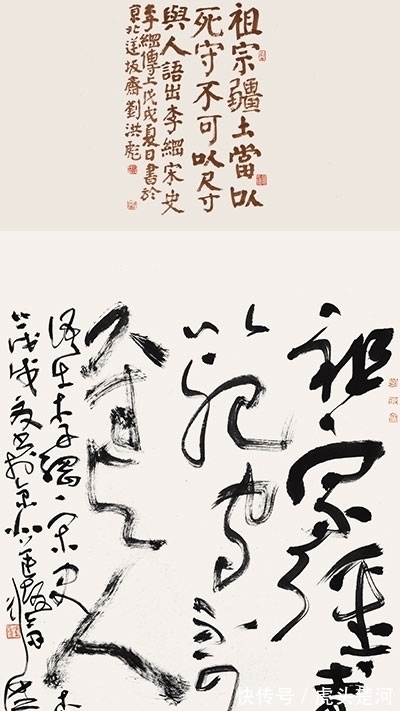 祖宗疆土當以
死守不可以尺寸
與人語出李綱宋史
李綱傳上戊戌夏日書於
京北坂齋劉洪彪
祖宗疆
以死守不可
與人
語出李綱宋史
戊戌夏書於京北
快传号/虎头楚河